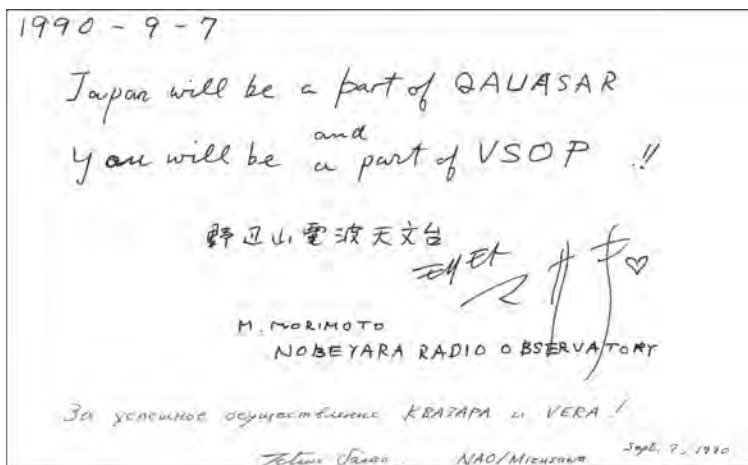 1990-9-7
Japan will be a part of QAUASAR
and
You will be a part of VSOP !!
野辺山電波天文台
M. MORIMOTO
NOBEYARA RADIO OBSERVATORY
За успешное осуществление КВАЗАРА и VERA!
NAO/Mizusawa Sept. 7, 1990